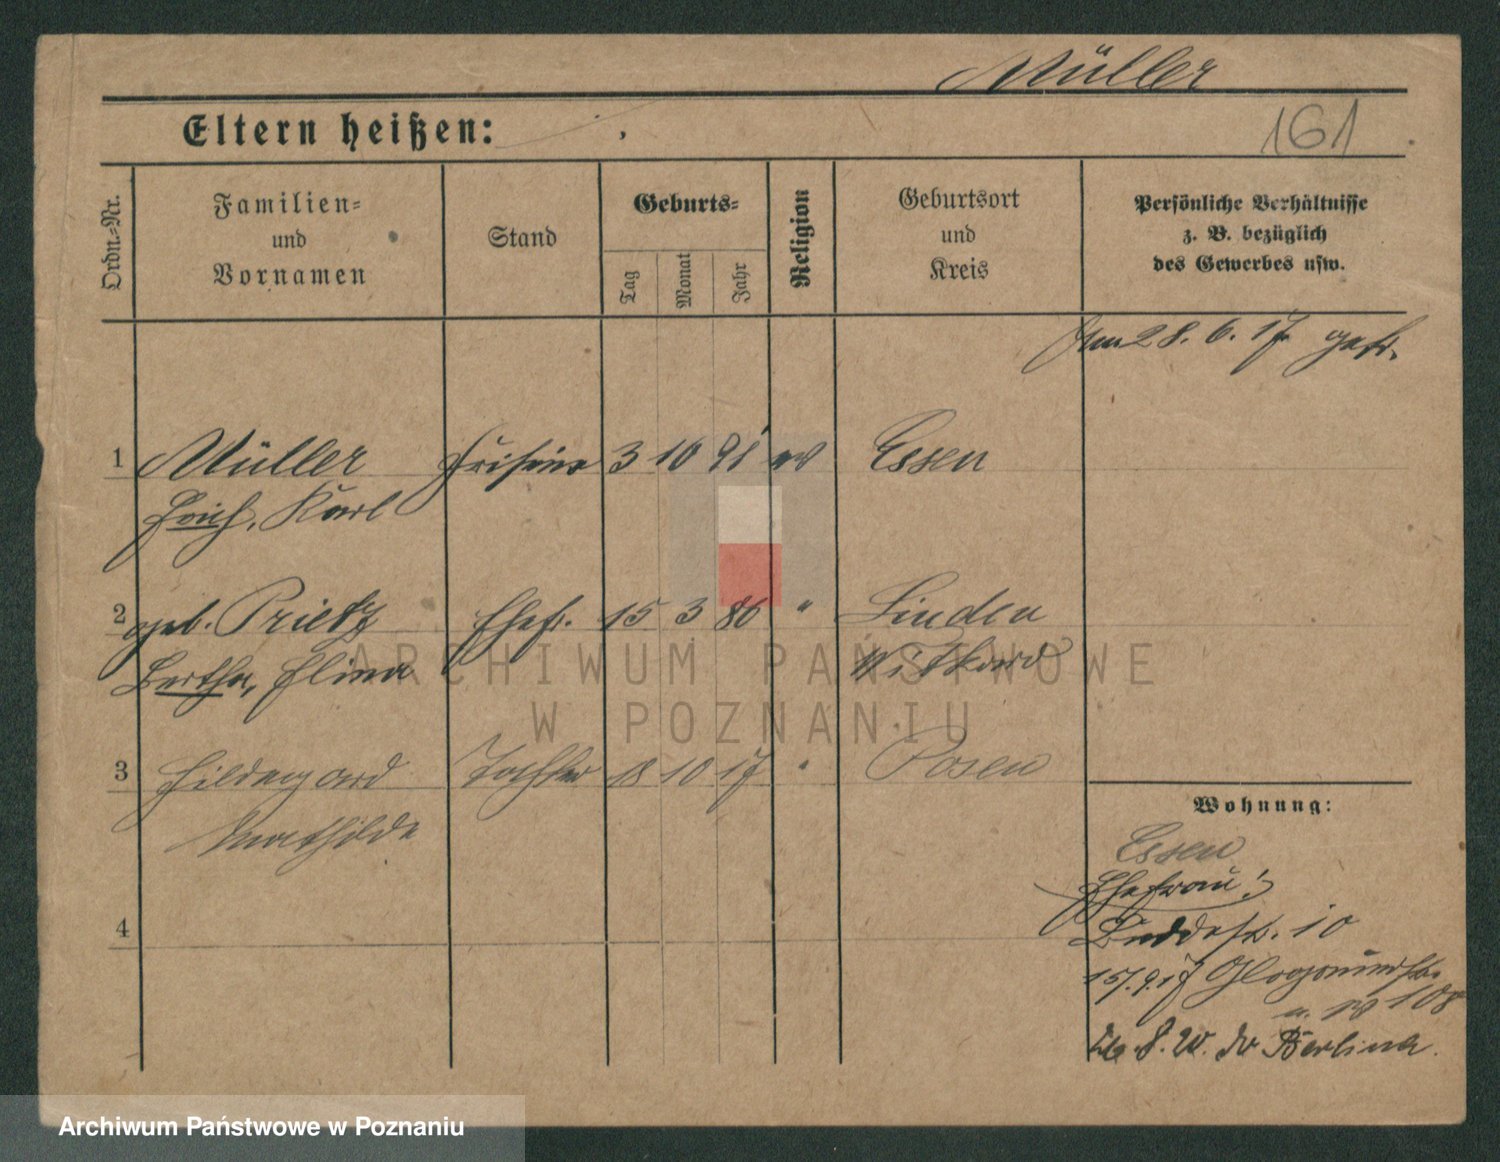 Müller
161
Eltern heißen:
Ordn.=Nr.
Familien=
und
Vornamen
Stand
Geburts=
Tag
Monat
Jahr
Religion
Geburtsort
und
Kreis
Persönliche Verhältnisse
z. B. bezüglich
des Gewerbes usw.
Am 28. 6. 17 getr.
1 Müller Friseur 3 10 91 ev Essen
Erich, Karl
2 geb. Prietz Ehefr. 15 3 86 " Linden
Bertha, Elina Witkowo
3 Hildegard Tochter 18 10 17 " Posen
Mathilde
4
Wohnung:
Essen
Ehefrau:
Buddestr. 10
15/9.17 Glogauerstr.
108
8. W. Berlin
ARCHIWUM PAŃSTWOWE
W POZNANIU
Archiwum Państwowe w Poznaniu